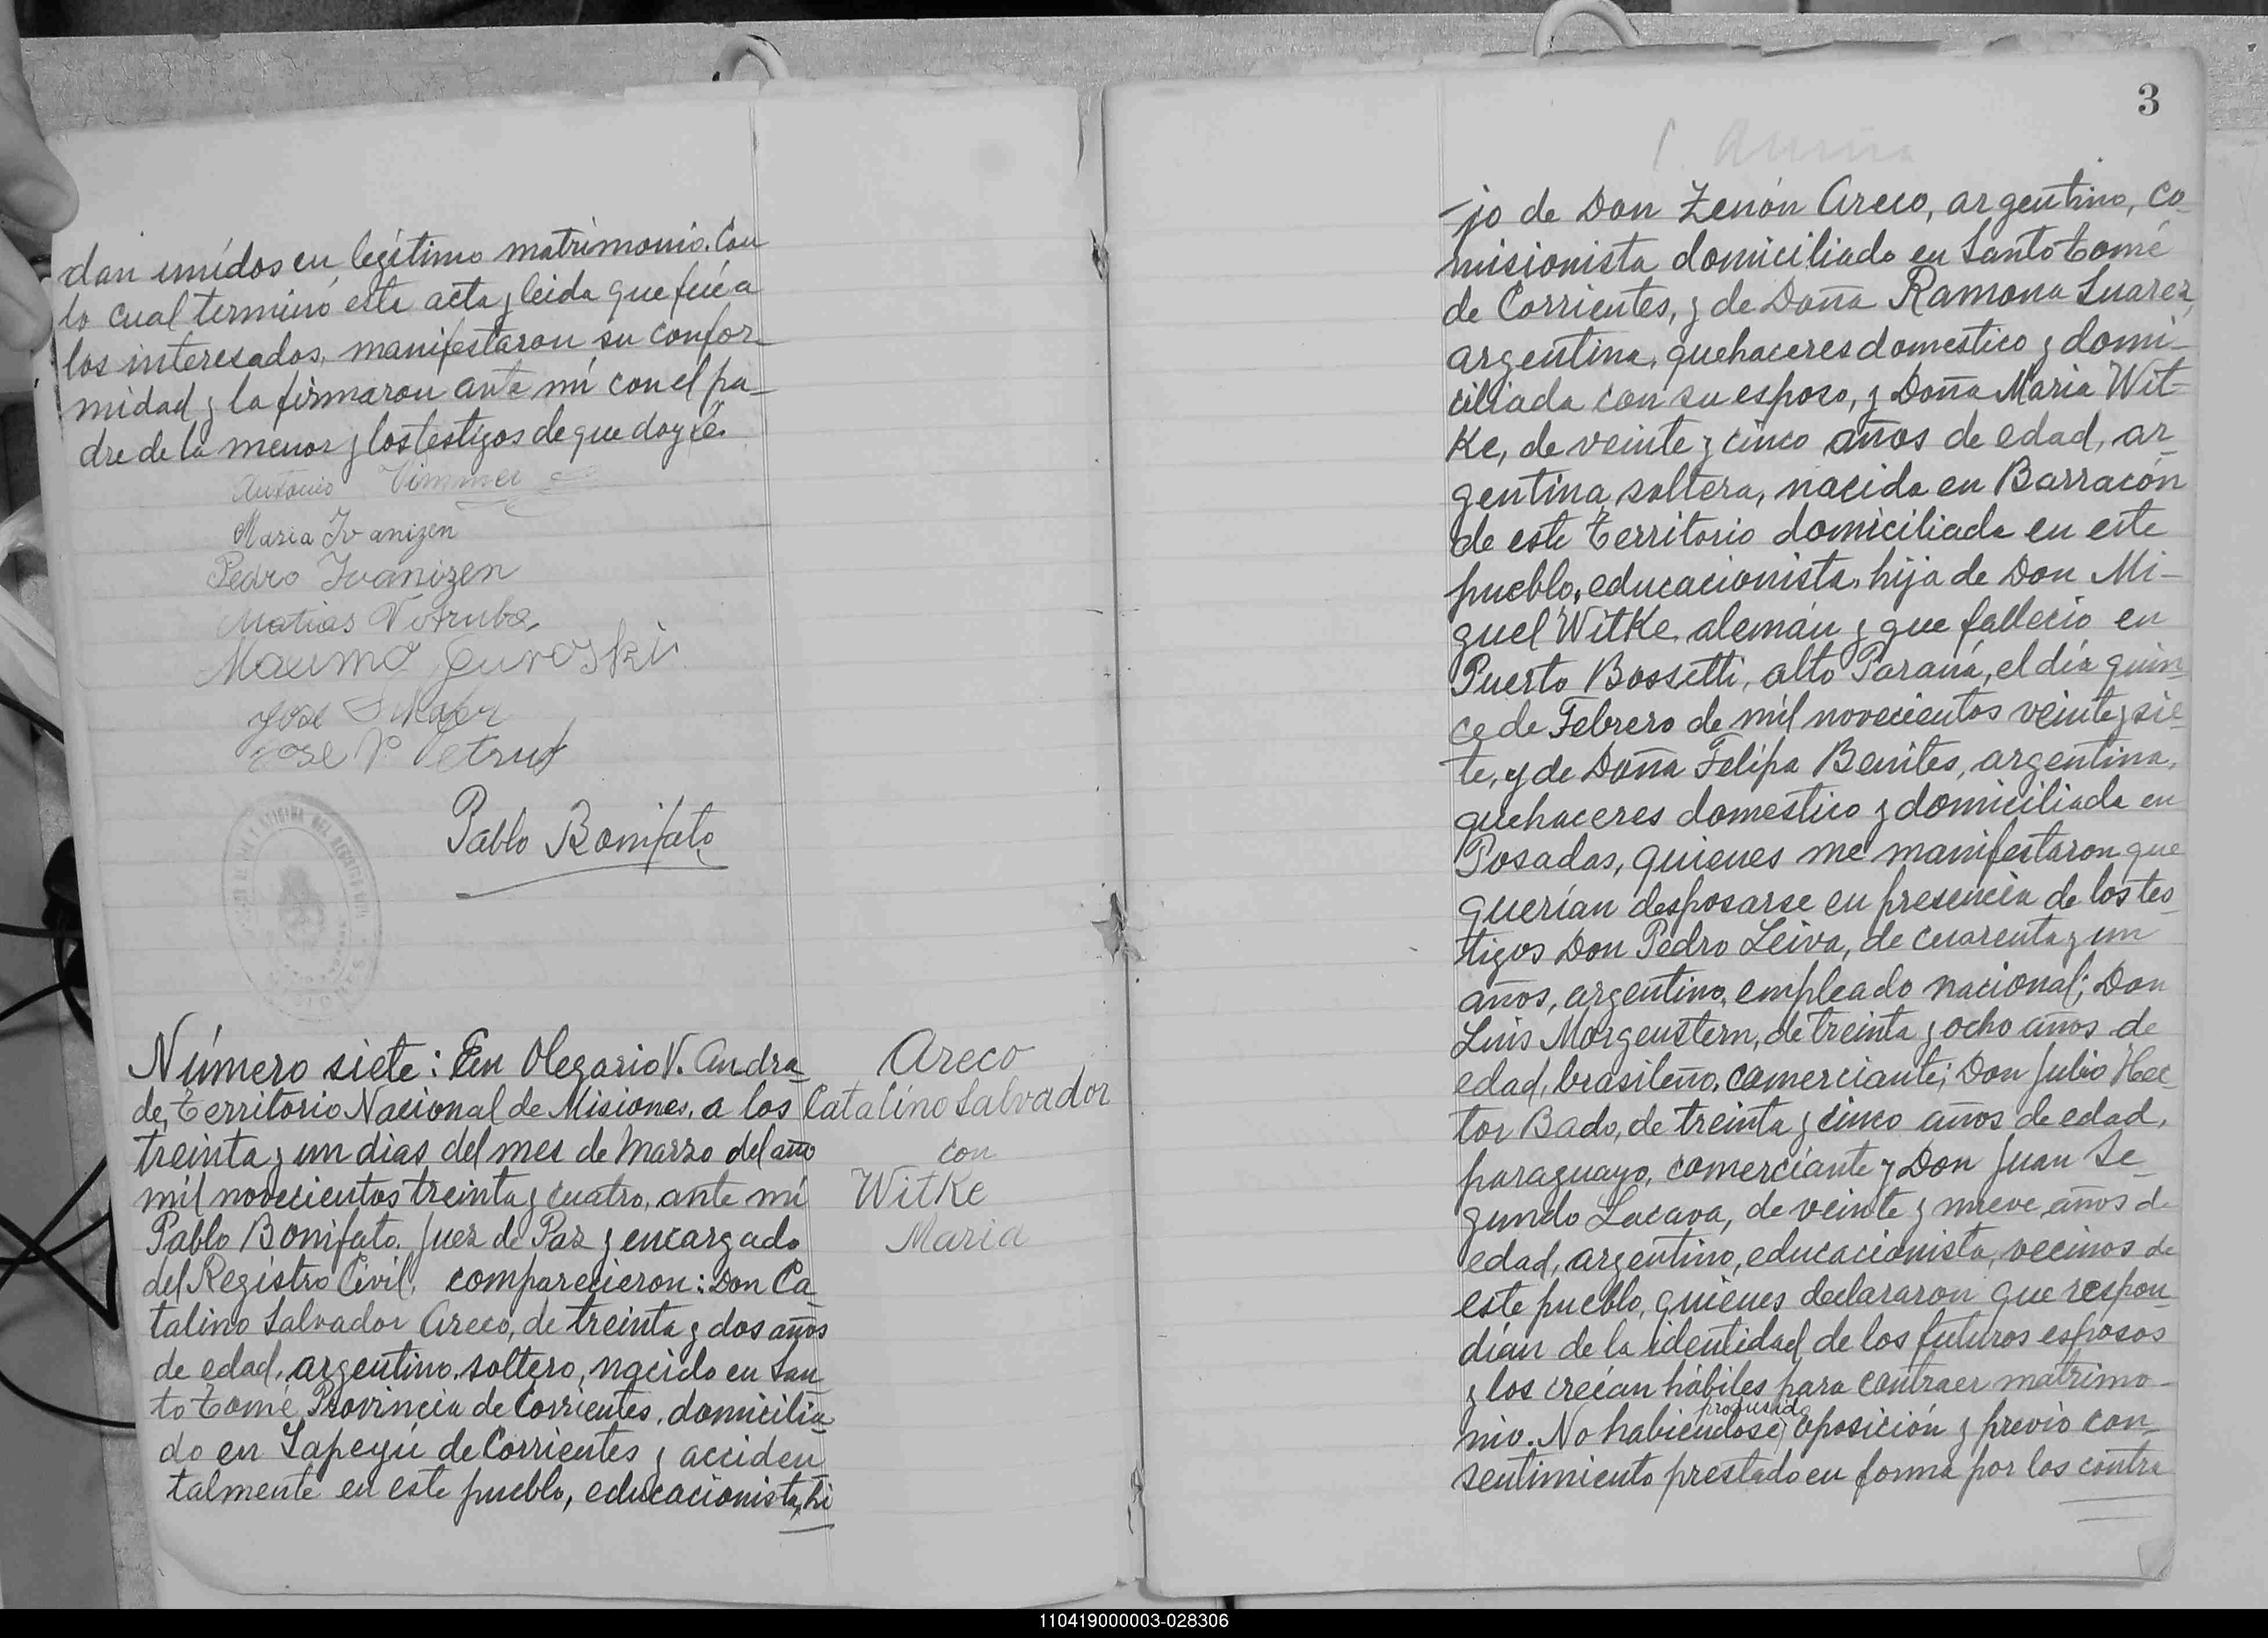 dan unidos en legítimo matrimonio. Con
lo cual terminó esta acta y leida que fué a
los interesados, manifestaron su confor-
midad y la firmaron ante mí con el pa-
dre de la menor y los testigos de que doy fé.
Antonio Vimmer
Maria Ivanizen
Pedro Ivanizen
Matias Votruba
Maximo
Jose
Jose
Pablo Bonifato
Número siete: En Olegario V. Andra-
de, Territorio Nacional de Misiones, a los
treinta y un dias del mes de Marzo del año
mil novecientos treinta y cuatro, ante mí
Pablo Bonifato, Juez de Paz y encargado
del Registro Civil, comparecieron: Don Ca-
talino Salvador Areco, de treinta y dos años
de edad, argentino, soltero, nacido en San-
to Tomé Provincia de Corrientes, domicilia-
do en Yapeyú de Corrientes y acciden-
talmente en este pueblo, educacionista, hi
Areco
Catalino Salvador
con
Witke
Maria
3
-jo de Don Zenón Areco, argentino, co-
misionista domiciliado en Santo Tomé
de Corrientes, y de Doña Ramona Suarez,
argentina, quehaceres domestico y domi-
ciliada con su esposo, y Doña Maria Wit-
Ke, de veinte y cinco años de edad, ar-
gentina, soltera, nacida en Barracón
de este Territorio domiciliada en este
pueblo, educacionista, hija de Don Mi-
guel Witke, alemán y que fallecio en
Puerto Bossetti, alto Paraná, el día quin-
ce de Febrero de mil novecientos veinte y sie-
te, y de Doña Felipa Benites, argentina,
quehaceres domestico y domiciliada en
Posadas, quienes me manifestaron que
querían desposarse en presencia de los tes-
tigos Don Pedro Leiva, de cuarenta y un
años, argentino, empleado nacional; Don
Luis Morgenstern, de treinta y ocho años de
edad, brasileño, comerciante; Don Julio Hec-
tor Bado, de treinta y cinco años de edad,
paraguayo, comerciante y Don Juan Se-
gundo Lacava, de veinte y nueve años de
edad, argentino, educacionista, vecinos de
este pueblo, quienes declararon que respon-
dían de la identidad de los futuros esposos
y los creían hábiles para contraer matrimo-
producido
nio. No habiendose oposición y previo con-
sentimiento prestado en forma por los contra
110419000003-028306